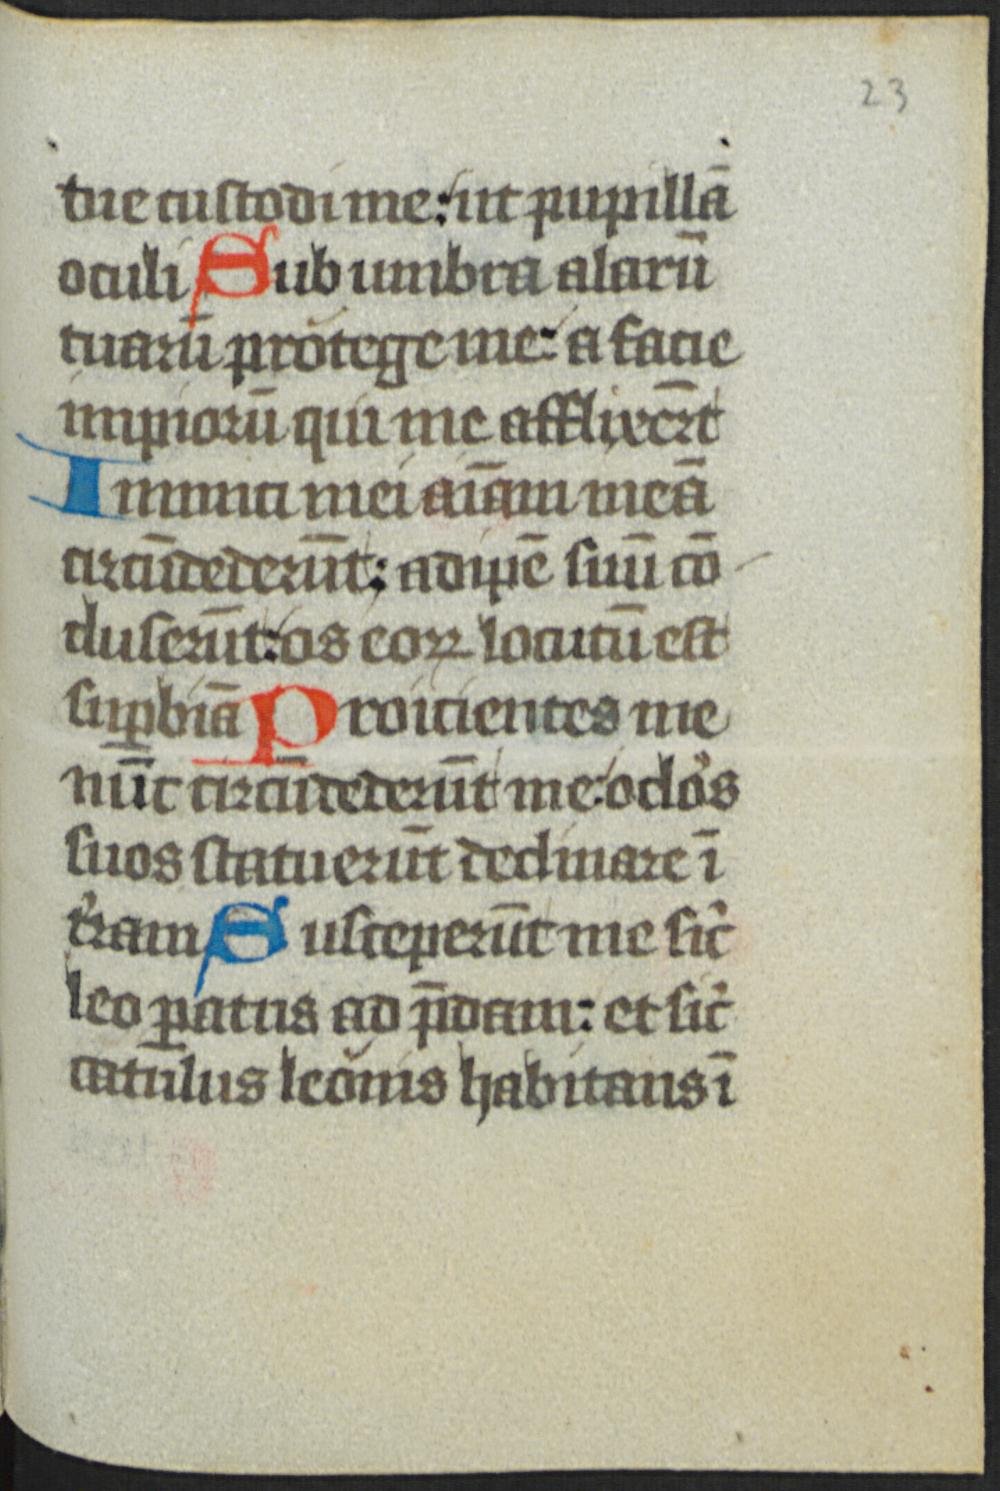 23
tue custodi me: ut pupillā
oculi Sub umbra alarū
tuarū protege me: a facie
impiorū qui me afflixer̄t
Inimici mei aīam meā
circūdederūt: adipē suū cō
cluserūt: os eoꝝ locutū est
suꝑbiā Proicientes me
nūc circūdederūt me: oclo᷒s
suos statuerūt declinare ī
t᷒ram Susceperūt me sic᷒
leo ꝑatus ad p̄dam: et sic᷒
catulus leonis habitans ī